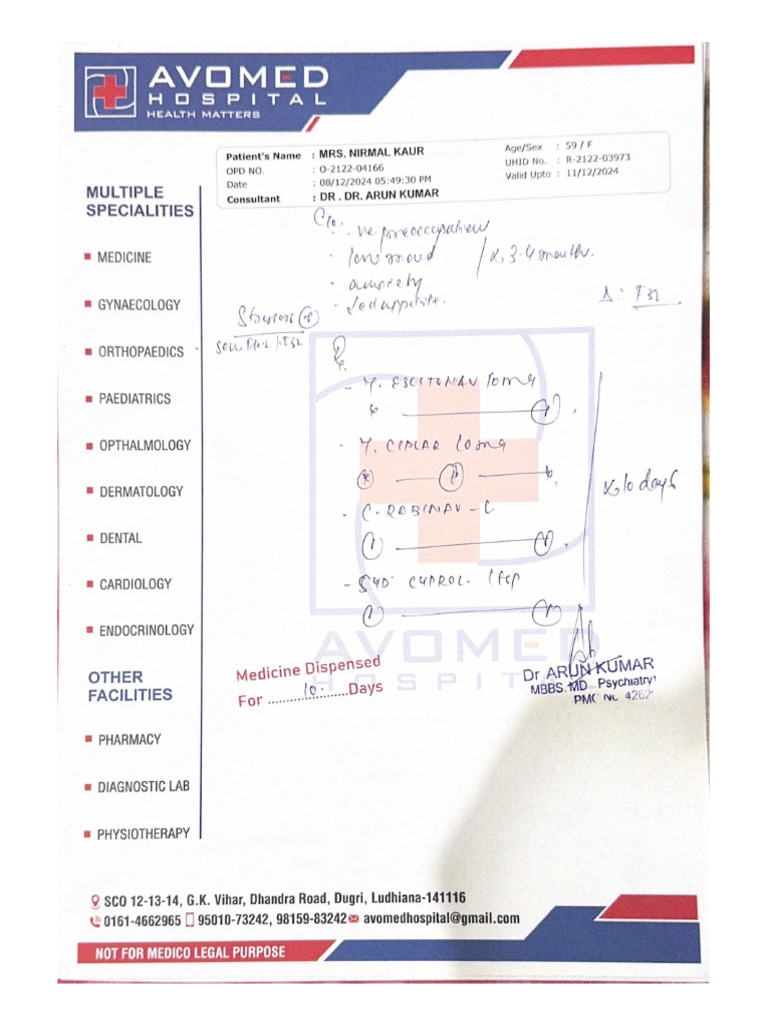 AVOMED
HOSPITAL
HEALTH MATTERS
Patient's Name : MRS. NIRMAL KAUR
OPD NO. : O-2122-04166
Date : 08/12/2024 05:49:30 PM
Consultant : DR . DR. ARUN KUMAR
Age/Sex : 59 / F
UHID No. : R-2122-03973
Valid Upto : 11/12/2024
MULTIPLE
SPECIALITIES
MEDICINE
GYNAECOLOGY
ORTHOPAEDICS
PAEDIATRICS
OPTHALMOLOGY
DERMATOLOGY
DENTAL
CARDIOLOGY
ENDOCRINOLOGY
OTHER
FACILITIES
PHARMACY
DIAGNOSTIC LAB
PHYSIOTHERAPY
C/o.
- -ve preoccupation
low mood
x 3-4 months.
anxiety
- ↓ed appetite.
Δ: F32
- T. ESCITONAV 10mg
- T. CIPLAR 10mg
- C. RABINAV-L
x 10 days
Medicine Dispensed
For ....10.....Days
Dr ARUN KUMAR
MBBS. MD Psychiatry
AVOMED
HOSPITAL
SCO 12-13-14, G.K. Vihar, Dhandra Road, Dugri, Ludhiana-141116
0161-4662965 95010-73242, 98159-83242 avomedhospital@gmail.com
NOT FOR MEDICO LEGAL PURPOSE